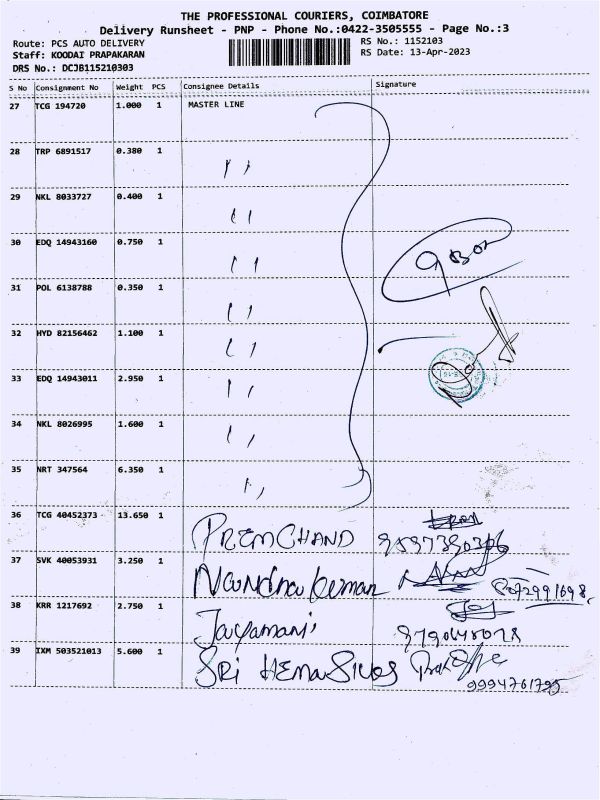 THE PROFESSIONAL COURIERS, COIMBATORE
Delivery Runsheet - PNP - Phone No.:0422-3505555 - Page No.:3
Route: PCS AUTO DELIVERY
RS No.: 1152103
Staff: KOODAI PRAPAKARAN
RS Date: 13-Apr-2023
DRS No.: DCJB115210303
S No Consignment No Weight PCS Consignee Details Signature
27 TCG 194720 1.000 1 MASTER LINE
28 TRP 6891517 0.380 1 ''
29 NKL 8033727 0.400 1 ''
30 EDQ 14943160 0.750 1 ''
31 POL 6138788 0.350 1 ''
32 HYD 82156462 1.100 1 ''
33 EDQ 14943011 2.950 1 ''
34 NKL 8026995 1.600 1 ''
35 NRT 347564 6.350 1 ''
36 TCG 40452373 13.650 1 PREMCHAND
37 SVK 40053931 3.250 1
38 KRR 1217692 2.750 1 Jayamani
39 IXM 503521013 5.600 1 SRI HEMA
9994761795